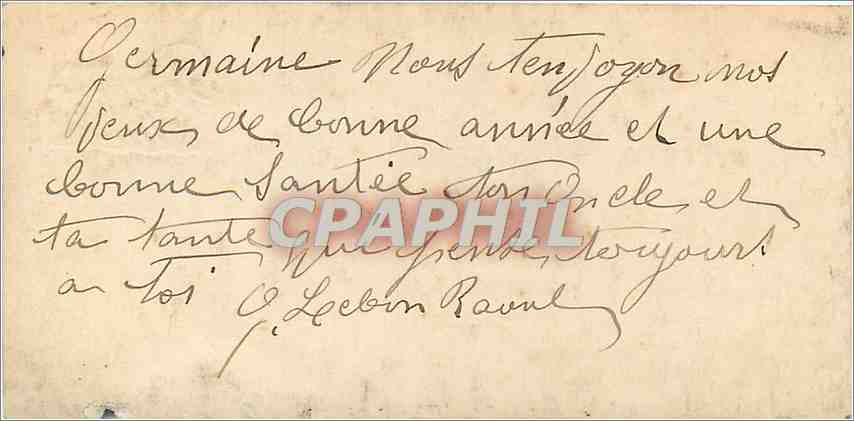 Germaine Nous tenvoyon nos
veux de bonne année et une
bonne Santée ton Oncle et
ta tante qui pense toujours
a toi G. Lebon Raoul
CPAPHIL